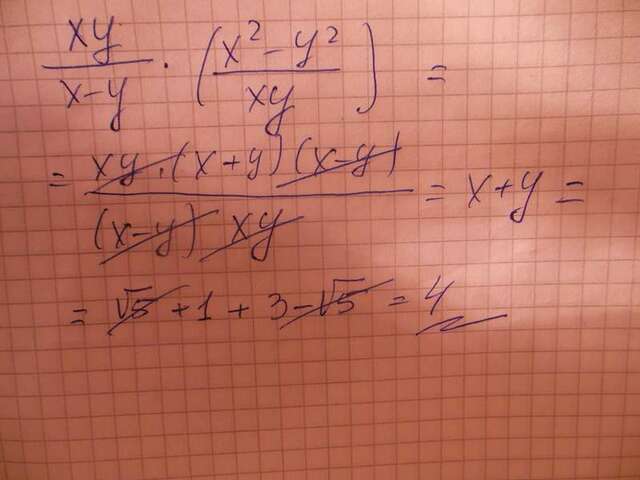 xy/(x-y) · ((x² - y²)/(xy)) =
= (xy · (x+y)(x-y))/((x-y) xy) = x+y =
= √5 + 1 + 3 - √5 = 4